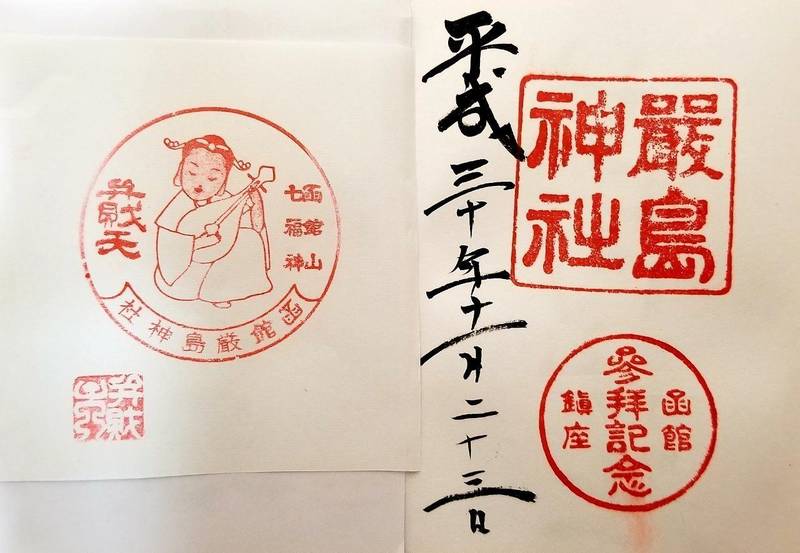 平成三十年十一月二十三日
嚴島
神社
函館
參拝記念
鎮座
函館山
七福神
弁財天
函館厳島神社